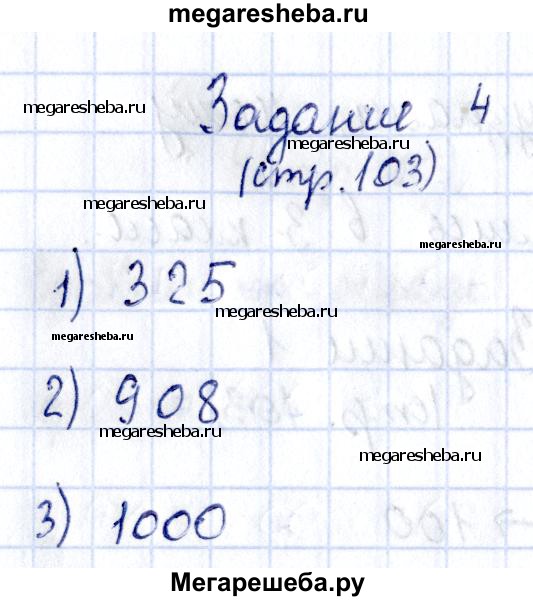 megaresheba.ru
megaresheba.ru
Задание 4
megaresheba.ru
(стр. 103)
megaresheba.ru
megaresheba.ru
1) 325
megaresheba.ru
megaresheba.ru
2) 908
megaresheba.ru
megaresheba.ru
3) 1000
Мегарешеба.ру